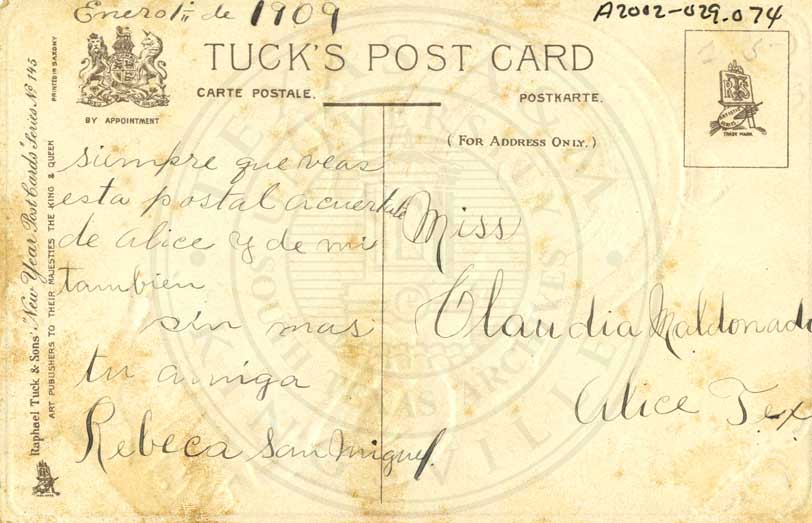 Enero 1 de 1909
A2002-029.074
TUCK'S POST CARD
CARTE POSTALE.
POSTKARTE.
BY APPOINTMENT
(FOR ADDRESS ONLY.)
TRADE MARK
Raphael Tuck & Sons' "New Year Post Cards" Series No 145
PRINTED IN SAXONY
ART PUBLISHERS TO THEIR MAJESTIES THE KING & QUEEN
siempre que veas
esta postal acuerdate
de Alice y de mi
tambien
sin mas
tu amiga
Rebeca San Miguel.
Miss
Claudia Maldonado
Alice Tex
SOUTH TEXAS ARCHIVES